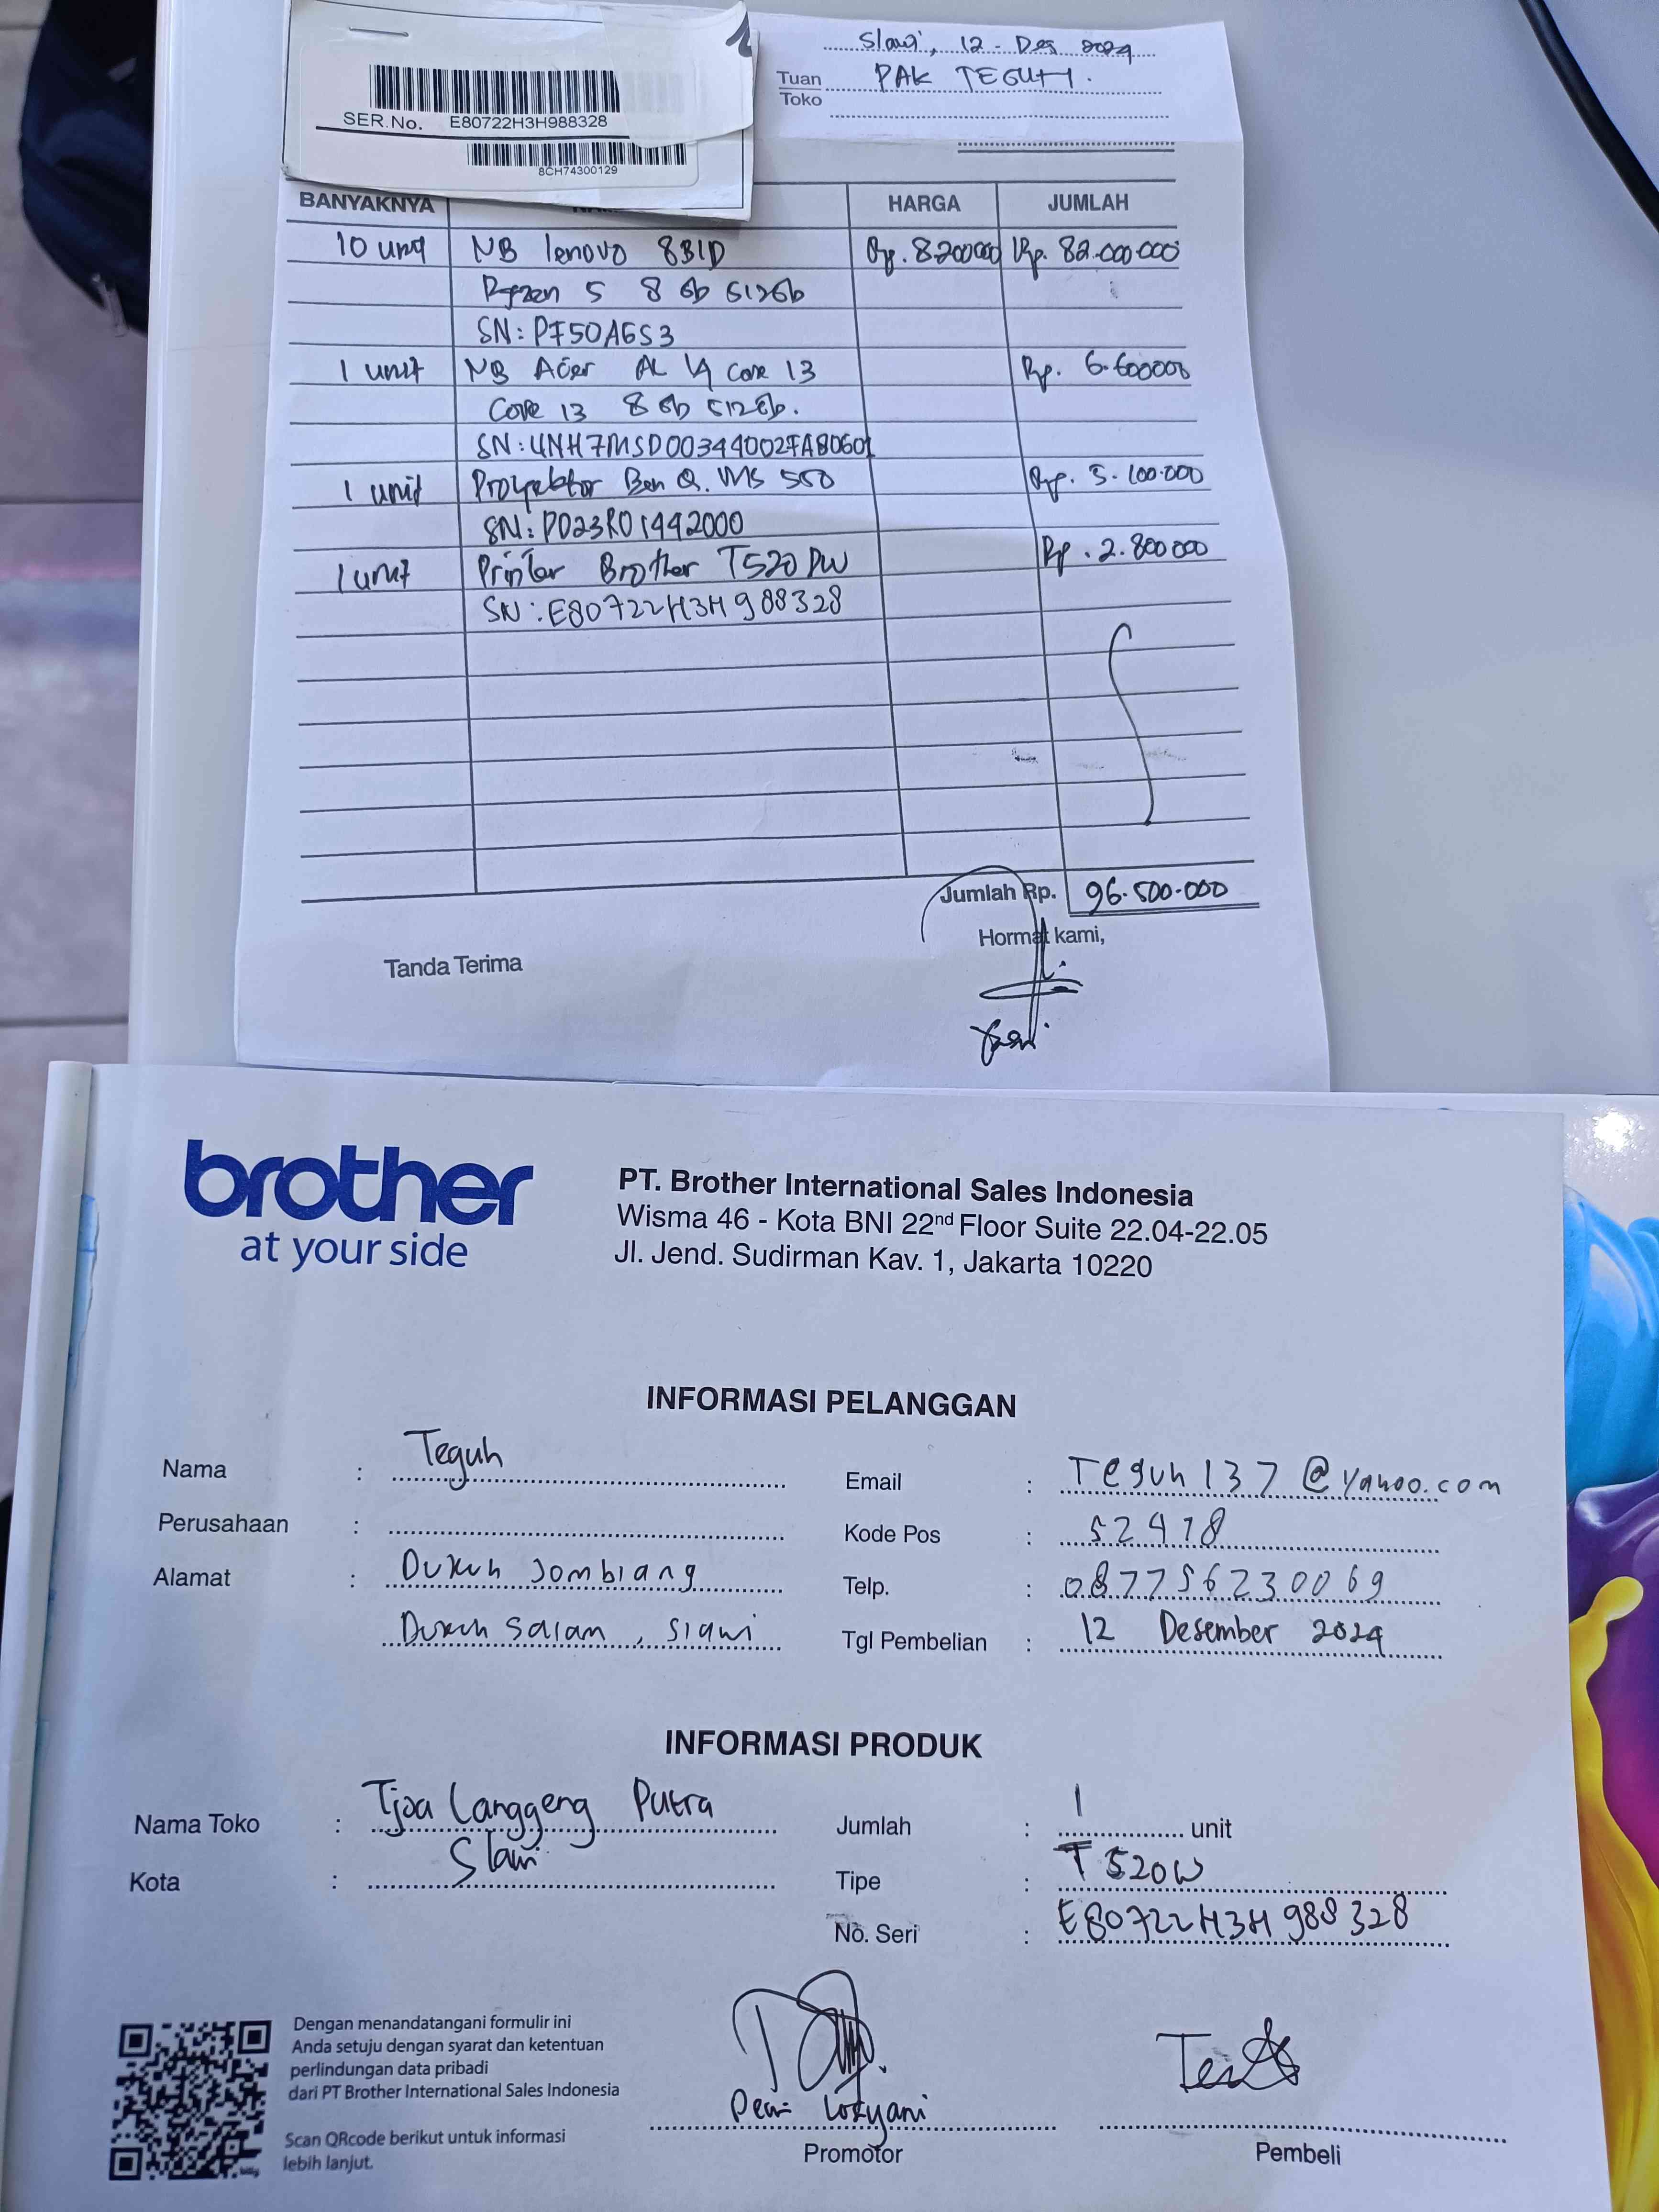 Slawi, 12 - Des 2024
Tuan PAK TEGUH.
Toko
SER.No. E80722H3H988328
8CH74300129
BANYAKNYA HARGA JUMLAH
10 unit NB lenovo 8BID Rp. 8200000 Rp. 82.000.000
Ryzen 5 8 Gb 512Gb
SN: PF50AGS3
1 unit NB Acer AL 14 Core 13 Rp. 6.600000
Core 13 8 Gb 512Gb.
SN: UNH7MSD00344002FAB0601
1 unit Proyektor Ben Q. MS 550 Rp. 5.100.000
SN: PD23R01442000
1 unit Printer Brother T520 DW Rp. 2.800 000
SN: E80722H3H988328
Jumlah Rp. 96.500.000
Hormat kami,
Tanda Terima
brother
at your side
PT. Brother International Sales Indonesia
Wisma 46 - Kota BNI 22nd Floor Suite 22.04-22.05
Jl. Jend. Sudirman Kav. 1, Jakarta 10220
INFORMASI PELANGGAN
Nama : Teguh
Email : Teguh137@yahoo.com
Perusahaan :
Kode Pos : 52418
Alamat : Dukuh Jombiang
Telp. : 0877562300​69
Dukuh Salam, Slawi
Tgl Pembelian : 12 Desember 2024
INFORMASI PRODUK
Nama Toko : Tjoa Langgeng Putra
Jumlah : 1 unit
Kota : Slawi
Tipe : T520W
No. Seri : E80722H3H988328
Dengan menandatangani formulir ini
Anda setuju dengan syarat dan ketentuan
perlindungan data pribadi
dari PT Brother International Sales Indonesia
Scan QRcode berikut untuk informasi
lebih lanjut.
Promotor
Pembeli